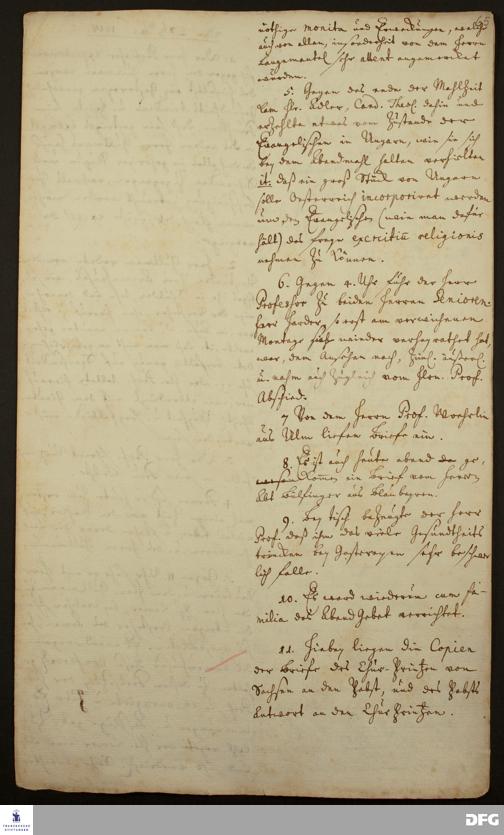 65
nöthige monita und Ermahnungen, welche
auch von allen, insonderheit von dem Herrn
Langemantel sehr attent angemercket
wurden.
5. Gegen das ende der Mahlzeit
kam Hr. Adler, Cand. Theol. dahin und
erzehlte etwas vom Zustande der
Evangelischen in Ungarn, wie sie sich
bey dem Abendmahl halten
it. daß ein groß Stück von Ungarn
solle Oesterreich incorporiret werden
um den Evangelischen (wie man dafür
hält) das freye exercitiũ religionis
nehmen zu können.
6. Gegen 4. Uhr fuhr der Herr
Professor zu beiden Herren Senioren.
Herr Harder, so erst am verwichenen
Montage sich wieder verheyrathet hat,
war, dem Ansehen nach,
u. nahm auch zugleich vom Hrn. Prof.
Abschied.
7 Von dem Herrn Prof. Woehrlin
aus Ulm liefen Briefe ein.
8. Es ist auch heute abend
kommen ein Brief vom Herrn
Abt Bilfinger aus Blaubeyren.
9. Bey tisch bezeugte der Herr
Prof. daß ihm das viele Gesundheits
trincken bey Gastereyen sehr beschwer
lich falle.
10. Es ward wiederum cum fa-
milia das Abend Gebet verrichtet.
11. Hiebey liegen die Copien
der Briefe des Chur-Printzen von
Sachsen an den Pabst, und des Pabsts
Antwort an den Chur Printzen.
FRANCKESCHE
STIFTUNGEN
DFG